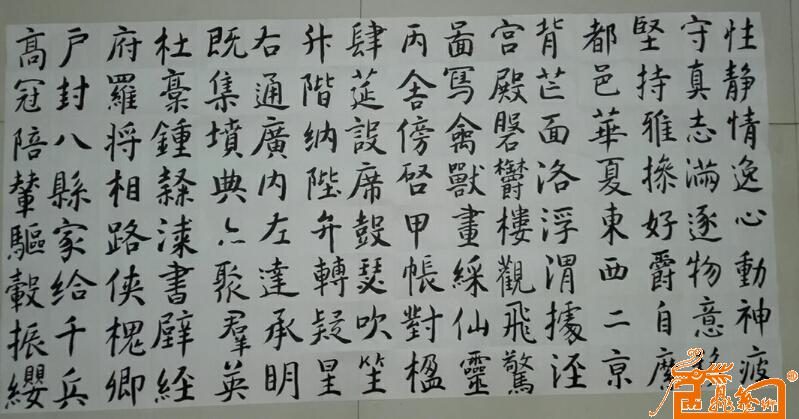 性静情逸心動神疲
守真志滿逐物意移
堅持雅操好爵自縻
都邑華夏東西二京
背芒面洛浮渭據涇
宮殿磐欝樓觀飛驚
啚寫禽獸畫綵仙靈
丙舍傍啓甲帳對楹
肆莚設席鼓瑟吹笙
升階納陛弁轉疑星
右通廣内左達承明
既集墳典亦聚羣英
杜稾鍾隸漆書壁経
府羅将相路俠槐卿
户封八縣家給千兵
髙冠陪輦驅轂振纓